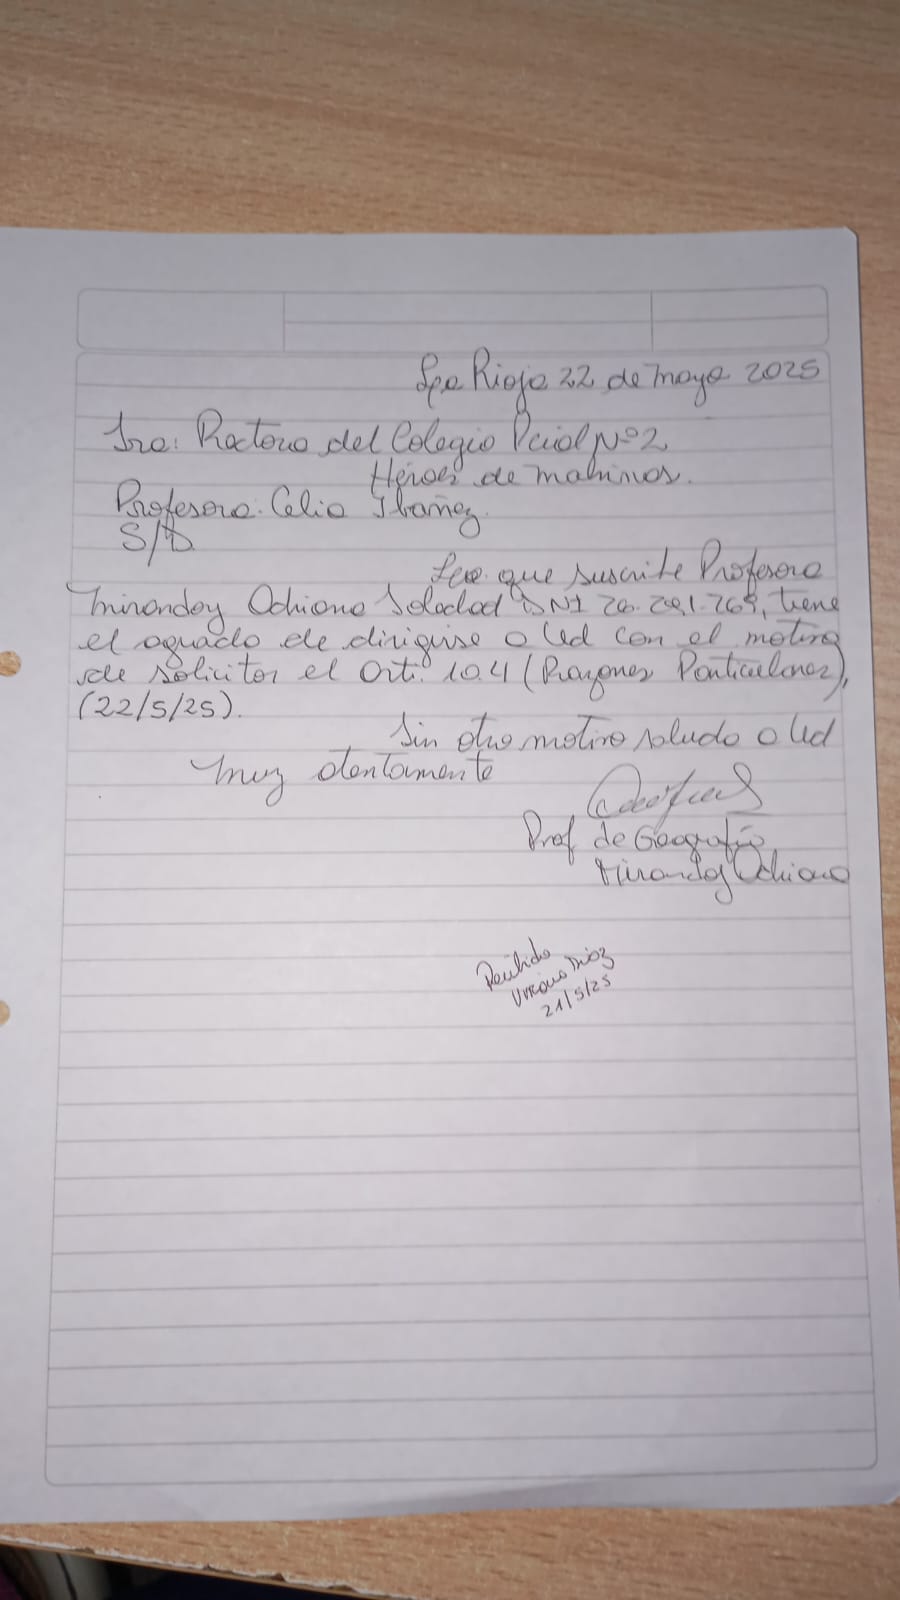 La Rioja 22 de mayo 2025
Sra: Rectora del Colegio Pcial Nº2
Héroes de malvinas.
Profesora: Celia Ibañez.
S/D
La que suscribe Profesora
Mirandoy Adriana Soledad DNI 26.291.769, tiene
el agrado de dirigirse a Ud con el motivo
de solicitar el Art: 10.4 (Razones Particulares),
(22/5/25).
Sin otro motivo saludo a Ud
muy atentamente
Prof de Geografía
Mirandoy Adriana
Recibido
Díaz
21/5/25